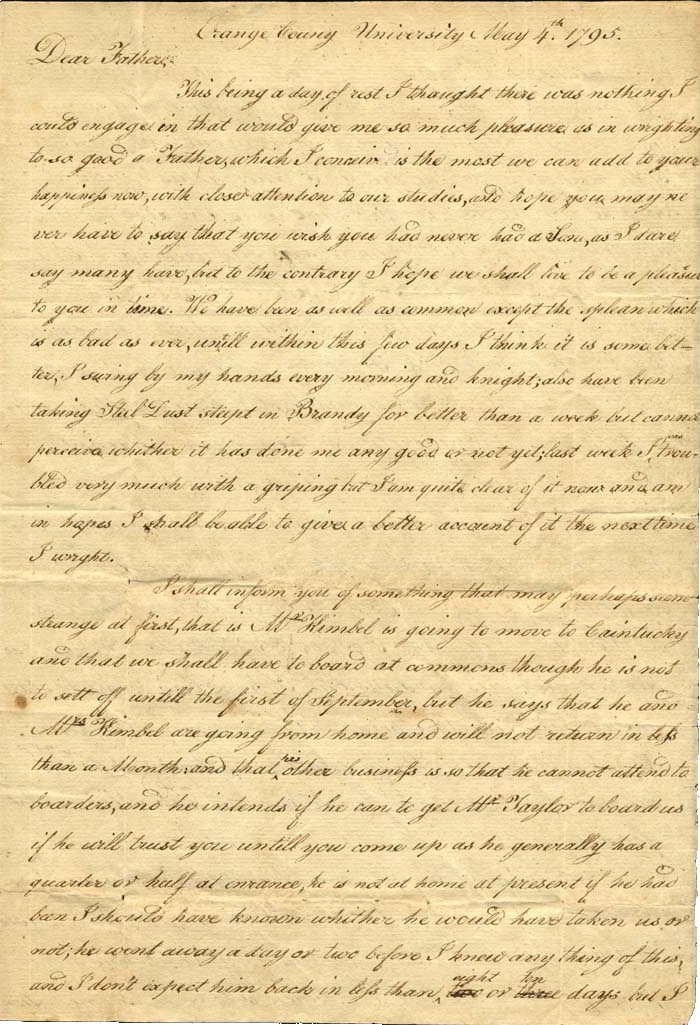 Orange County University May 4th. 1795.
Dear Father,
This being a day of rest I thaught there was nothing I
could engage in that would give me so much pleasure as in wrighting
to so good a Father, which I conceive is the most we can add to your
happiness now, with close attention to our studies, and hope you may ne
ver have to say that you wish you had never had a Son, as I dare
say many have, but to the contrary I hope we shall live to be a pleasure
to you in time. We have been as well as common except the splean which
is as bad as ever, untill within this few days I think it is some bet-
ter; I swing by my hands every morning and knight; also have been
taking Steel Dust steept in Brandy for better than a week but cannot
perceive whither it has done me any good or not yet; last week I was trou-
bled very much with a griping but I am quite clear of it now and am
in hopes I shall be able to give a better account of it the next time
I wright.
I shall inform you of something that may perhaps seem
strange at first, that is Mr. Kimbel is going to move to Caintucky
and that we shall have to board at commons though he is not
to sett off untill the first of September, but he says that he and
Mrs Kimbel are going from home and will not return in less
than a Month; and that his other business is so that he cannot attend to
boarders, and he intends if he can to get Mr. Taylor to board us
if he will trust you untill you come up as he generally has a
quarter or half at enrance, he is not at home at present if he had
ben I should have known whither he would have taken us or
not; he went away a day or two before I knew any thing of this,
and I don't expect him back in less than two eight or three ten days but I